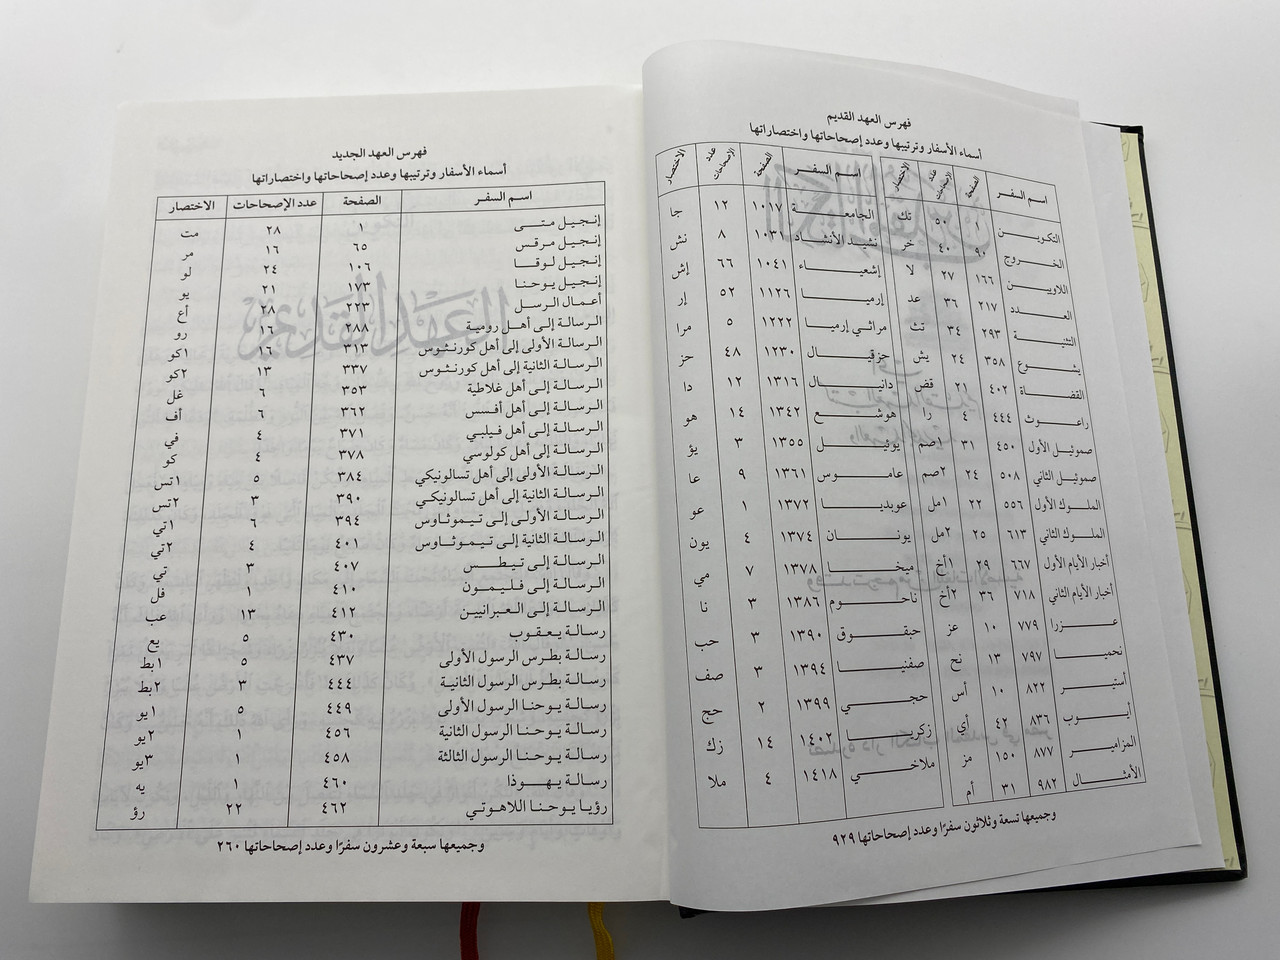 فهرس العهد القديم
أسماء الأسفار وترتيبها وعدد إصحاحاتها واختصاراتها
اسم السفر الصفحة عدد الإصحاحات الاختصار اسم السفر الصفحة عدد الإصحاحات الاختصار
التكوين ١ ٥٠ تك الجامعة ١٠١٧ ١٢ جا
الخروج ٩٠ ٤٠ خر نشيد الأنشاد ١٠٣١ ٨ نش
اللاويين ١٦٦ ٢٧ لا إشعياء ١٠٤١ ٦٦ إش
العدد ٢١٧ ٣٦ عد إرميا ١١٢٦ ٥٢ إر
التثنية ٢٩٣ ٣٤ تث مراثي إرميا ١٢٢٢ ٥ مرا
يشوع ٣٥٨ ٢٤ يش حزقيال ١٢٣٠ ٤٨ حز
القضاة ٤٠٢ ٢١ قض دانيال ١٣١٦ ١٢ دا
راعوث ٤٤٤ ٤ را هوشع ١٣٤٢ ١٤ هو
صموئيل الأول ٤٥٠ ٣١ ١صم يوئيل ١٣٥٥ ٣ يؤ
صموئيل الثاني ٥٠٨ ٢٤ ٢صم عاموس ١٣٦١ ٩ عا
الملوك الأول ٥٥٦ ٢٢ ١مل عوبديا ١٣٧٢ ١ عو
الملوك الثاني ٦١٣ ٢٥ ٢مل يونان ١٣٧٤ ٤ يون
أخبار الأيام الأول ٦٦٧ ٢٩ ١أخ ميخا ١٣٧٨ ٧ مي
أخبار الأيام الثاني ٧١٨ ٣٦ ٢أخ ناحوم ١٣٨٦ ٣ نا
عزرا ٧٧٩ ١٠ عز حبقوق ١٣٩٠ ٣ حب
نحميا ٧٩٧ ١٣ نح صفنيا ١٣٩٤ ٣ صف
أستير ٨٢٢ ١٠ أس حجي ١٣٩٩ ٢ حج
أيوب ٨٣٦ ٤٢ أي زكريا ١٤٠٢ ١٤ زك
المزامير ٨٧٧ ١٥٠ مز ملاخي ١٤١٨ ٤ ملا
الأمثال ٩٨٢ ٣١ أم
وجميعها تسعة وثلاثون سفرًا وعدد إصحاحاتها ٩٢٩
فهرس العهد الجديد
أسماء الأسفار وترتيبها وعدد إصحاحاتها واختصاراتها
اسم السفر الصفحة عدد الإصحاحات الاختصار
إنجيل متى ١ ٢٨ مت
إنجيل مرقس ٦٥ ١٦ مر
إنجيل لوقا ١٠٦ ٢٤ لو
إنجيل يوحنا ١٧٣ ٢١ يو
أعمال الرسل ٢٢٣ ٢٨ أع
الرسالة إلى أهل رومية ٢٨٨ ١٦ رو
الرسالة الأولى إلى أهل كورنثوس ٣١٣ ١٦ ١كو
الرسالة الثانية إلى أهل كورنثوس ٣٣٧ ١٣ ٢كو
الرسالة إلى أهل غلاطية ٣٥٣ ٦ غل
الرسالة إلى أهل أفسس ٣٦٢ ٦ أف
الرسالة إلى أهل فيلبي ٣٧١ ٤ في
الرسالة إلى أهل كولوسي ٣٧٨ ٤ كو
الرسالة الأولى إلى أهل تسالونيكي ٣٨٤ ٥ ١تس
الرسالة الثانية إلى أهل تسالونيكي ٣٩٠ ٣ ٢تس
الرسالة الأولى إلى تيموثاوس ٣٩٤ ٦ ١تي
الرسالة الثانية إلى تيموثاوس ٤٠١ ٤ ٢تي
الرسالة إلى تيطس ٤٠٧ ٣ تي
الرسالة إلى فليمون ٤١٠ ١ فل
الرسالة إلى العبرانيين ٤١٢ ١٣ عب
رسالة يعقوب ٤٣٠ ٥ يع
رسالة بطرس الرسول الأولى ٤٣٧ ٥ ١بط
رسالة بطرس الرسول الثانية ٤٤٤ ٣ ٢بط
رسالة يوحنا الرسول الأولى ٤٤٩ ٥ ١يو
رسالة يوحنا الرسول الثانية ٤٥٦ ١ ٢يو
رسالة يوحنا الرسول الثالثة ٤٥٨ ١ ٣يو
رسالة يهوذا ٤٦٠ ١ يه
رؤيا يوحنا اللاهوتي ٤٦٢ ٢٢ رؤ
وجميعها سبعة وعشرون سفرًا وعدد إصحاحاتها ٢٦٠